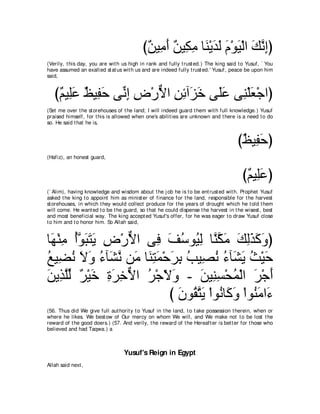 (إِنَّكَ الْيَوْمَ لَدَيْنَا مَكِينٌ أَمِينٌ)
(Verily, this day, you are with us high in rank and fully trusted.) The king said to Yusuf, `You
have assumed an exalted status with us and are indeed fully trusted.' Yusuf, peace be upon him
said,
(اجْعَلْنِى عَلَى خَزَآئِنِ الاٌّرْضِ إِنِّى حَفِيظٌ عَلِيمٌ)
(Set me over the storehouses of the land; I will indeed guard them with full knowledge.) Yusuf
praised himself, for this is allowed when one's abilities are unknown and there is a need to do
so. He said that he is,
(حَفِيظٌ)
(Hafiz), an honest guard,
(عَلِيمٌ)
(`Alim), having knowledge and wisdom about the job he is to be entrusted with. Prophet Yusuf
asked the king to appoint him as minister of finance for the land, responsible for the harvest
storehouses, in which they would collect produce for the years of drought which he told them
will come. He wanted to be the guard, so that he could dispense the harvest in the wisest, best
and most beneficial way. The king accepted Yusuf's offer, for he was eager to draw Yusuf close
to him and to honor him. So Allah said,
(وَكَذلِكَ مَكَّنَّا لِيُوسُفَ فِى الاٌّرْضِ يَتَبَوَّأُ مِنْهَا
حَيْثُ يَشَآءُ نُصِيبُ بِرَحْمَتِنَا مَن نَّشَآءُ وَلاَ نُضِيعُ
أَجْرَ الْمُحْسِنِينَ - وَلاّجْرُ الاٌّخِرَةِ خَيْرٌ لِّلَّذِينَ
ءَامَنُواْ وَكَانُواْ يَتَّقُونَ )
(56. Thus did We give full authority to Yusuf in the land, to take possession therein, when or
where he likes. We bestow of Our mercy on whom We will, and We make not to be lost the
reward of the good doers.) (57. And verily, the reward of the Hereafter is better for those who
believed and had Taqwa.) a
Yusuf's Reign in Egypt
Allah said next,